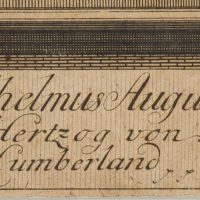 helmus Augu
Hertzog von
Cumberland